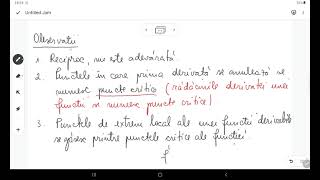 Untitled Jam
Observații
1. Reciproc, nu este adevărată
2. Punctele în care prima derivată se anulează se
numesc puncte critice (rădăcinile derivatei unei
funcții se numesc puncte critice)
3. Punctele de extrem local ale unei funcții derivabile
se găsesc printre punctele critice ale funcției
f